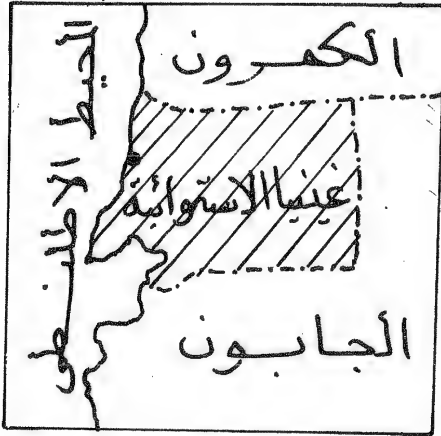 الكمرون
المحيط الاطلسى
غينيا الاستوائية
الجابون